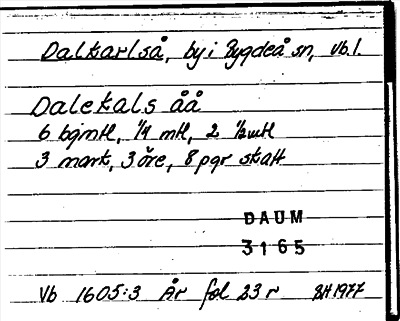 Dalkarlså, by i Bygdeå sn, Vb. l.
Dalekals åå
6 bgmtl, 1/4 mtl, 2 1/2 mtl
3 mark, 3 öre, 8 pgr skatt
DAUM
3165
Vb 1605:3 År fol 23 r BH 1977